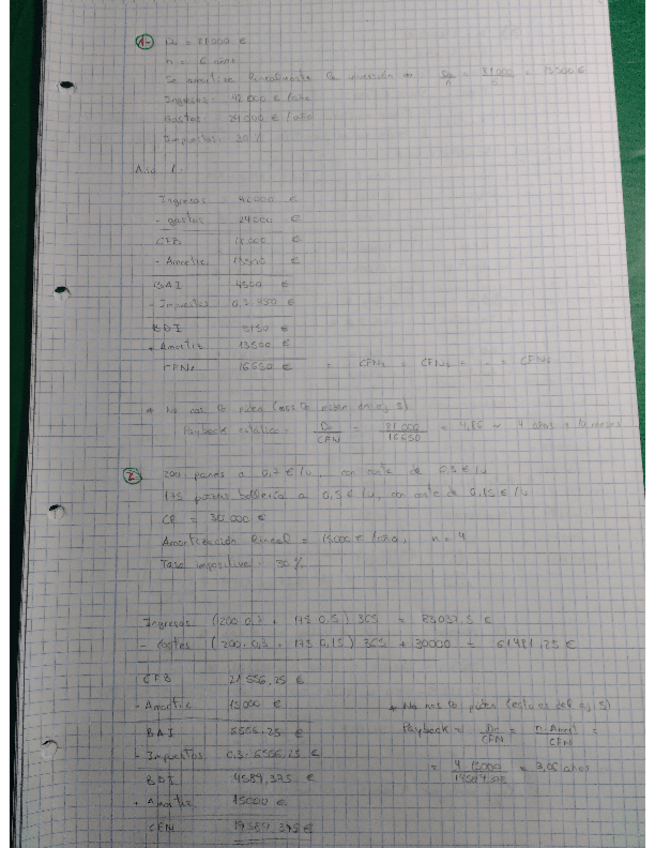 1- Do = 81000 €
n = 6 años
Se amortiza linealmente la inversión → Do/n = 81000/6 = 13500 €
Ingresos: 42000 € /año
Gastos: 24000 € /año
Impuestos: 30 %
Año 1:
Ingresos 42000 €
- gastos 24000 €
CFB 18000 €
- Amortiz. 13500 €
BAI 4500 €
- Impuestos 0,3·4500 €
BDI 3150 €
+ Amortiz 13500 €
CFN1 16650 € = CFN2 = CFN3 = ... = CFN6
* No nos lo piden (nos lo piden en ej 5)
Payback estático = Do/CFN = 81000/16650 = 4,86 ~ 4 años y meses
2- 200 panes a 0,7 €/u, con coste de 0,3 €/u
175 bollería a 0,5 €/u, con coste de 0,15 €/u
CF = 30.000 €
Amortización lineal = 15000 € /año, n = 4
Tasa impositiva: 30 %
Ingresos (200·0,7 + 175·0,5) 365 = 83037,5 €
- costes (200·0,3 + 175·0,15) 365 + 30000 = 61481,25 €
CFB 21556,25 €
- Amortiz 15000 € * No nos lo piden (esto es del ej 5)
BAI 6556,25 € Payback = Do/CFN = n·Amort/CFN =
- Impuestos 0,3·6556,25 €
= 4·15000/19589,375 = 3,06 años
BDI 4589,375 €
+ Amortiz 15000 €
CFN 19589,375 €